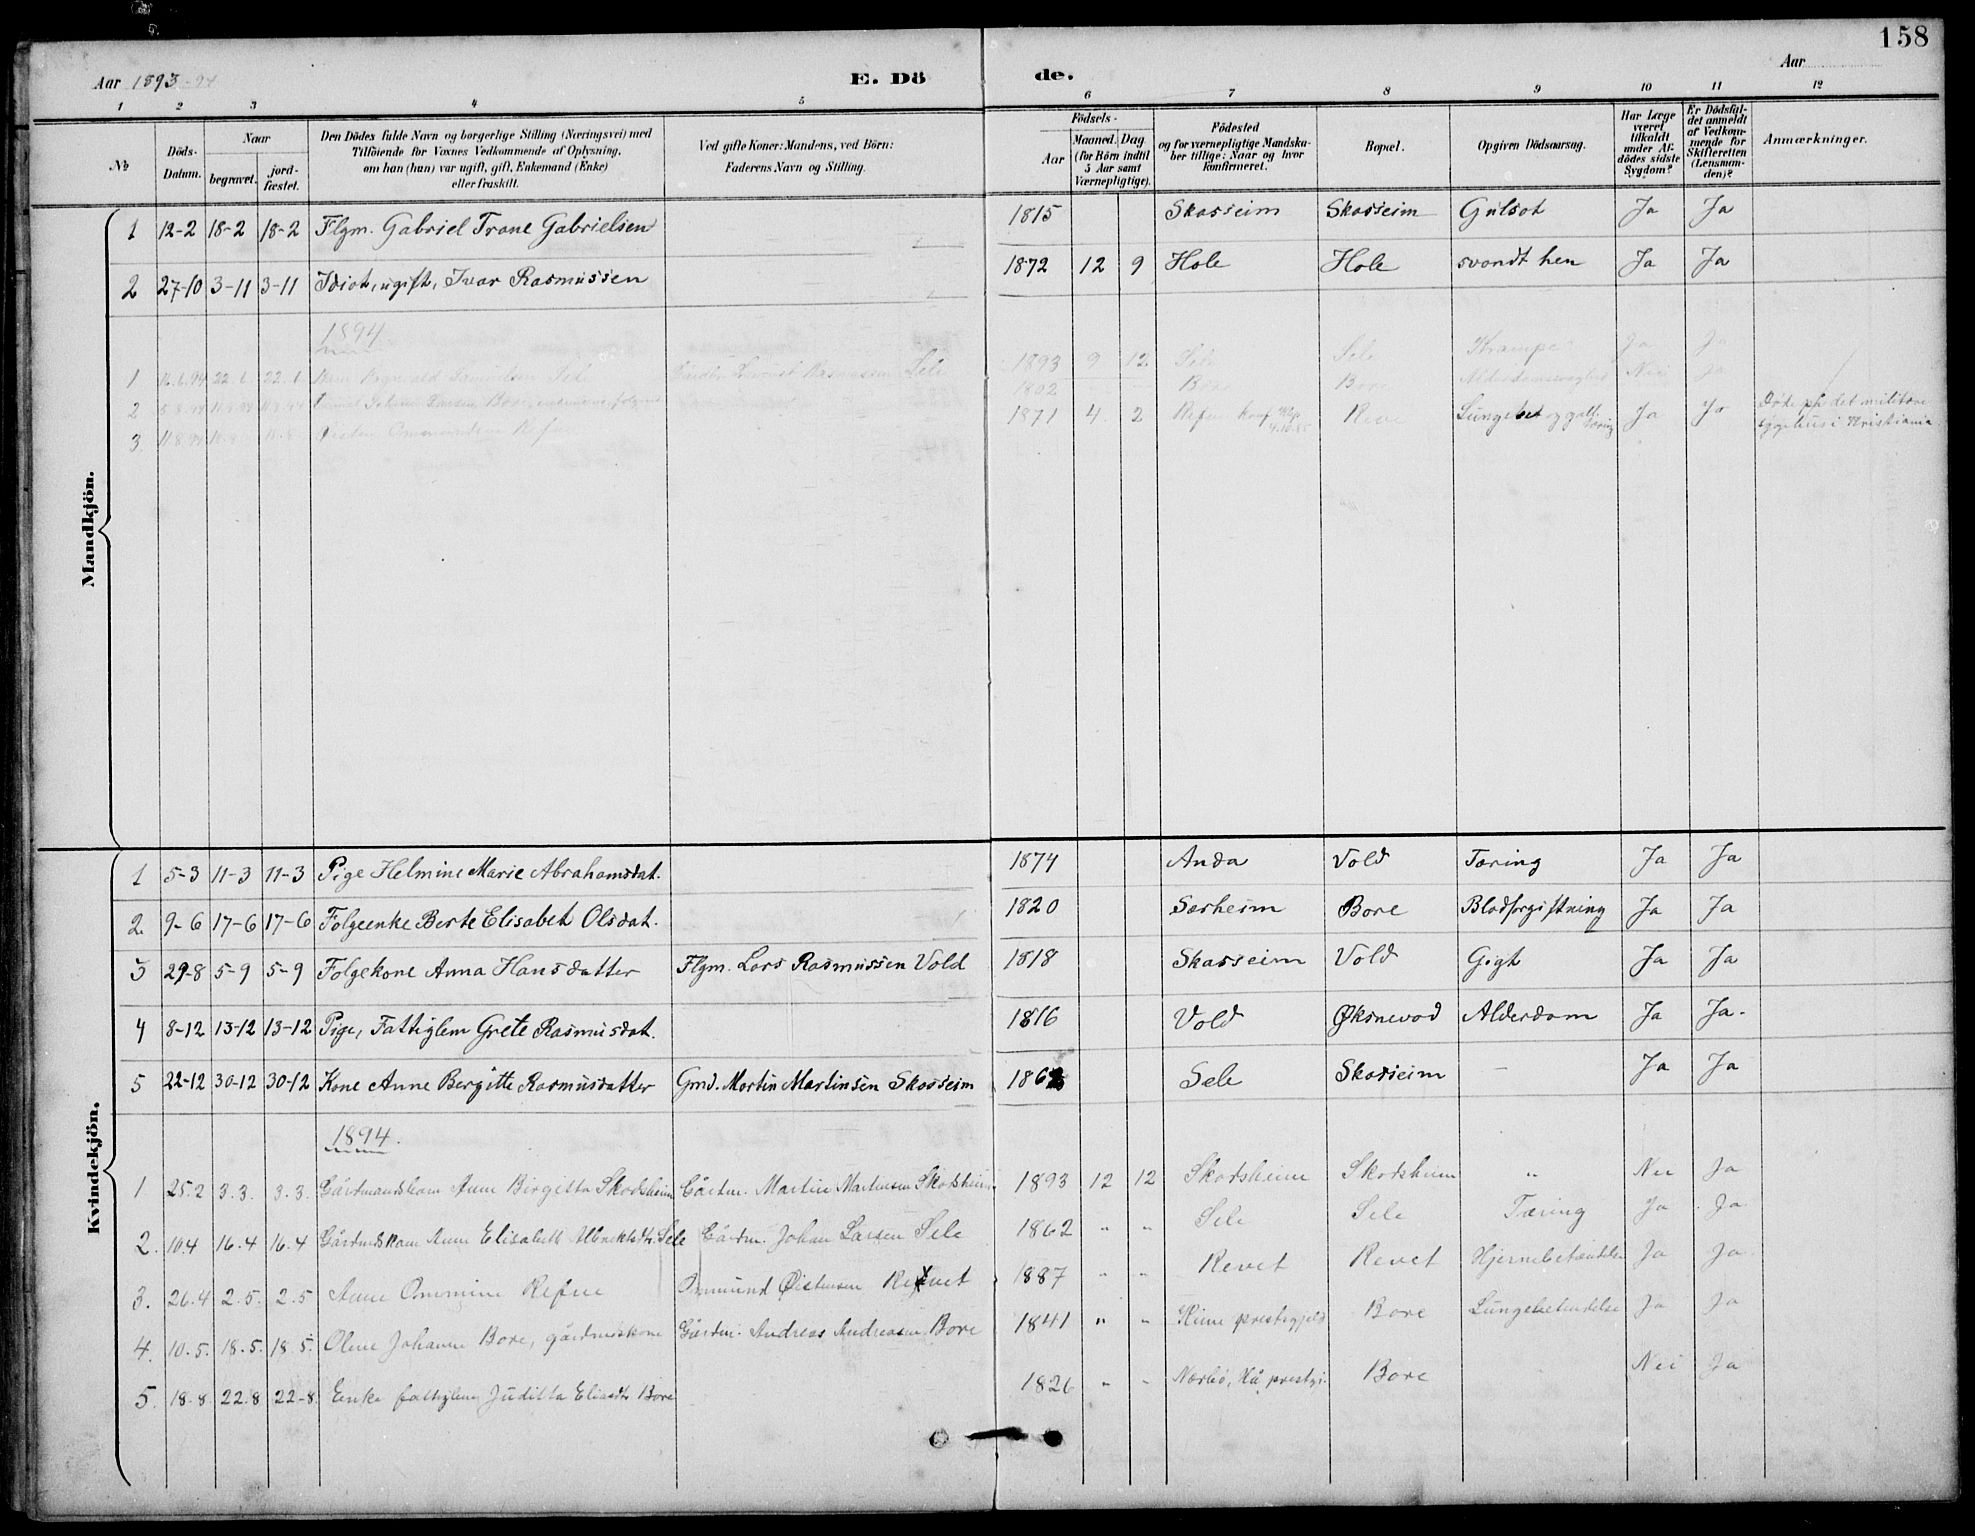 158
Aar 1893-94 E. Dö de. Aar
1 2 3 4 5 6 7 8 9 10 11 12
№ Döds-Datum. Naar begravet. jord-fæstet. Den Dödes fulde Navn og borgerlige Stilling (Næringsvei) med Tilföiende for Voxnes Vedkommende af Oplysning, om han (hun) var ugift, gift, Enkemand (Enke) eller fraskilt. Ved gifte Koner: Mandens, ved Börn: Faderens Navn og Stilling. Födsels- Aar Maaned. Dag. (for Börn indtil 5 Aar samt Værnepligtige). Födested og for værnepligtige Mandskaber tillige: Naar og hvor konfirmeret. Bopæl. Opgiven Dödsaarsag. Har Læge været tilkaldt under Afdödes sidste Sygdom? Er Dödsfaldet anmeldt af Vedkommende for Skifteretten (Lensmanden)? Anmærkninger.
Mandkjön.
1 12-2 18-2 18-2 Flgm. Gabriel Trane Gabrielsen 1815 Skasseim Skasseim Gulsot Ja Ja
2 27-10 3-11 3-11 Idiot, ugift, Ivar Rasmussen 1872 12 9 Hole Hole svandt hen Ja Ja
1894
1 22.6. 22.6 Sele 1893 9 12 Sele Sele Krampe Ja Ja
2 1802 Bore Bore Alderdomssvaghed Nei Ja
3. 11.8.94 Refue 1871 4 2 Refue konf Reve Lungebet og gall. tæring Ja Ja Døde på det militære sygehus i Kristiania
Kvindekjön.
1 5-3 11-3 11-3 Pige Helmine Marie Abrahamsdat. 1874 Anda Vold Tæring Ja Ja
2. 9-6 17-6 17-6 Folgeenke Berte Elisabet Olsdat. 1820 Særheim Bore Blodforgiftning Ja Ja
3 29-8 5-9 5-9 Folgekone Anna Hansdatter Flgm. Lars Rasmussen Vold 1818 Skasseim Vold Gigt Ja Ja
4 8-12 13-12 13-12 Pige, Fattiglem Grete Rasmusdat. 1816 Vold Øksnevad Alderdom Ja Ja.
5 22-12 30-12 30-12 Kone Anne Bergitte Rasmusdatter Gmd. Martin Martinsen Skasseim 1862 Sele Skasseim - Ja Ja
1894.
1 25.2 3.3. 3.3. Gårdmandsbarn Anne Birgitta Skadsheim Gårdm. Martin Martinsen Skadsheim 1893 12 12 Skadsheim Skadsheim " Nei Ja
2. 10.4 16.4 16.4 Gårdmdskone Anne Elisabeth Albrektsdtr. Sele Gårdm. Johan Larsen Sele 1862 " " Sele Sele Tæring Ja Ja
3. 26.4 2.5. 2.5 Anne Ommine Refue Osmund Øistensen Revet 1887 " " Revet Revet Hjernebetændelse Ja Ja
4. 10.5. 18.5. 18.5. Olene Johanne Bore, gårdmdskone Gårdm. Andreas Andreasen Bore 1841 " " Time prestegjeld Bore Lungebetendelse Ja Ja
5. 18.8 22.8 22-8. Enke fattiglem Juditta Eliasdtr Bore 1826 " " Nærbø, Hå prestgj. Bore Nei Ja